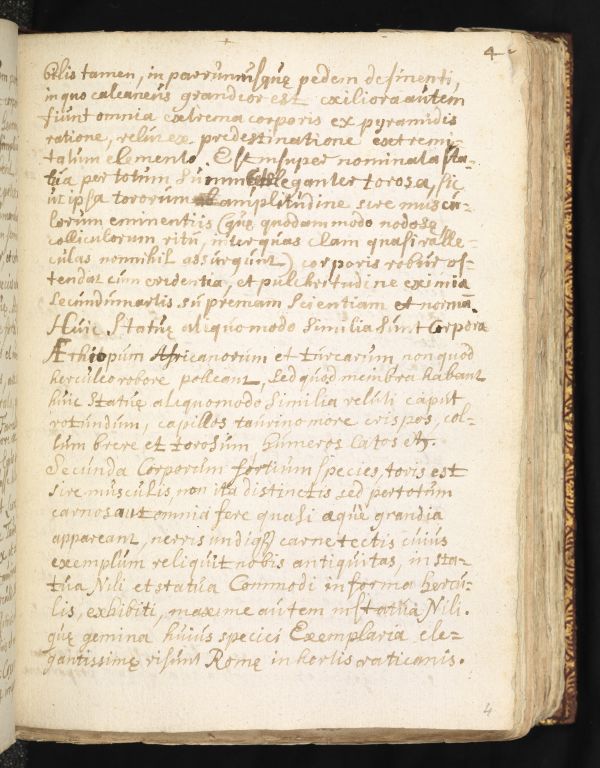 4
bilis tamen, in parrumisquę pedem desinenti,
in quo calcaneus grandior est exiliora autem
fiunt omnia extrema corporis ex pyramidis
ratione, velut ex predestinatione extremi-
tatum elemento. Est insuper nominata sta-
tua per totum summè eleganter torosa, sic
ut ipsa tororum amplitudine sive muscu-
lorum eminentiis (quę quodammodo nodosę
colliculorum ritu, inter quas clam quasi valle-
culas nonnihil assurgunt) corporis robur os-
tendat cum evidentia, et pulchritudine eximia
secundum artis supremam scientiam et normā
Huic Statuę aliquomodo similia sunt Corpora
Æthiopum Africanorum et turcarum non quod
herculeo robore polleant, sed quod membra habeant
huic Statuę aliquomodo similia veluti caput
rotundum, capillos taurino more crispos, col-
lum breve et torosum, humeros latos etc.
Secunda Corporum fortium species, toris est
sive musculis, non ita distinctis sed per totum
carnosa ut omnia fere quasi æque grandia
appareant, nervis undiq carne tectis cuius
exemplum reliquit nobis antiquitas, in sta-
tua Nili et statua Commodi in forma hercu-
lis, exhibiti, maxime autem in statua Nili.
quę gemina huius speciei Exemplaria ele-
gantissimę visunt Romę in hortis vaticanis.
4